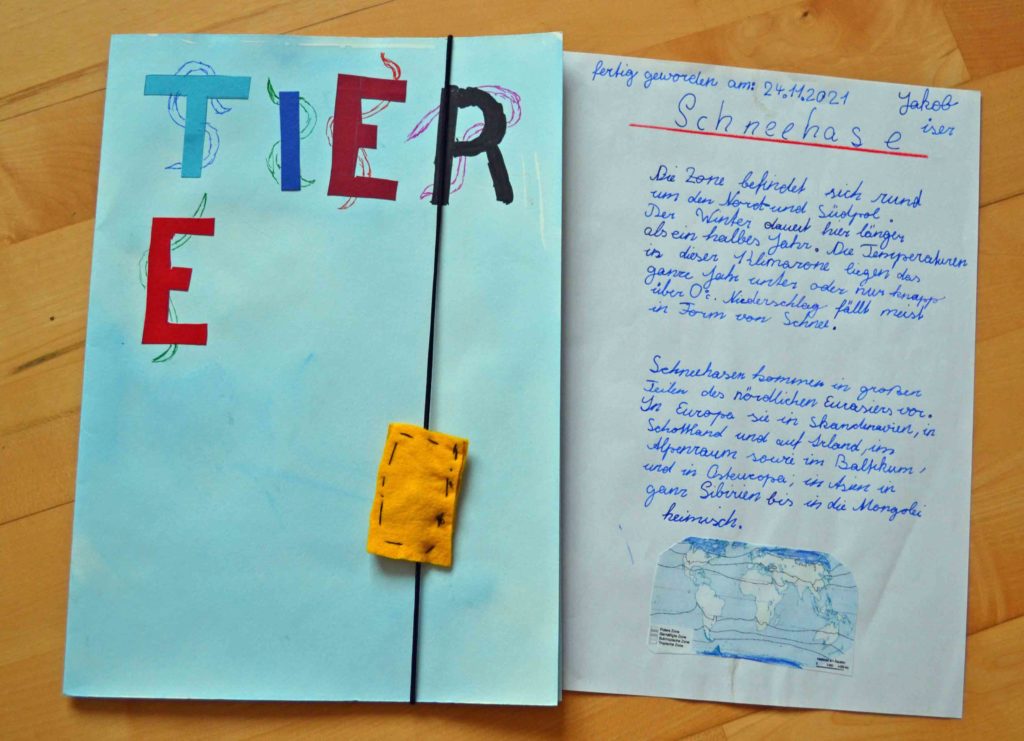 TIER
E
fertig geworden am: 24.11.2021
Jakob
iser
Schneehase
Die Zone befindet sich rund
um den Nord-und Südpol.
Der Winter dauert hier länger
als ein halbes Jahr. Die Temperaturen
in dieser Klimazone liegen das
ganze Jahr unter oder nur knapp
über 0°. Niederschlag fällt meist
in Form von Schnee.
Schneehasen kommen in großen
Teilen des nördlichen Eurasiens vor.
In Europa sie in Skandinavien, in
Schottland und auf Irland, im
Alpenraum sowie im Baltikum,
und in Osteuropa; in Asien in
ganz Sibirien bis in die Mongolei
heimisch.
Polare Zone
Gemäßigte Zone
Subtropische Zone
Tropische Zone